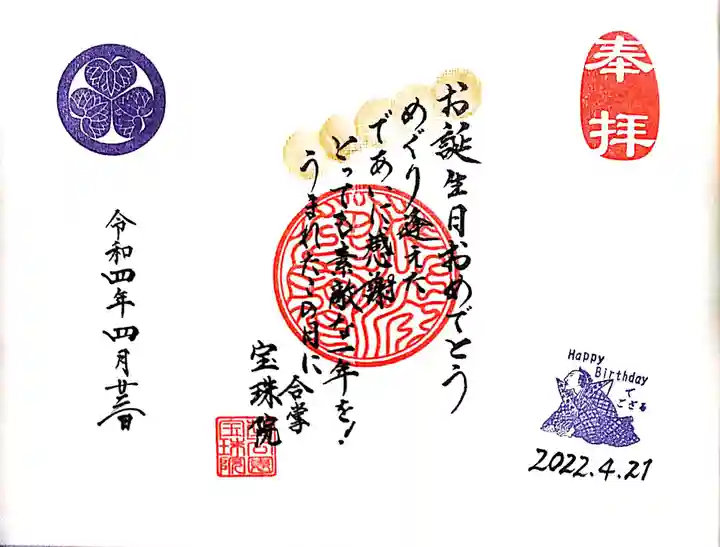 奉拝
お誕生日おめでとう
めぐり逢えた
であいに感謝
とっても素敵な一年を!
うまれたこの日に
合掌
宝珠院
芝公園
宝珠院
令和四年四月
Happy
Birthday
で
ござる
2022.4.21